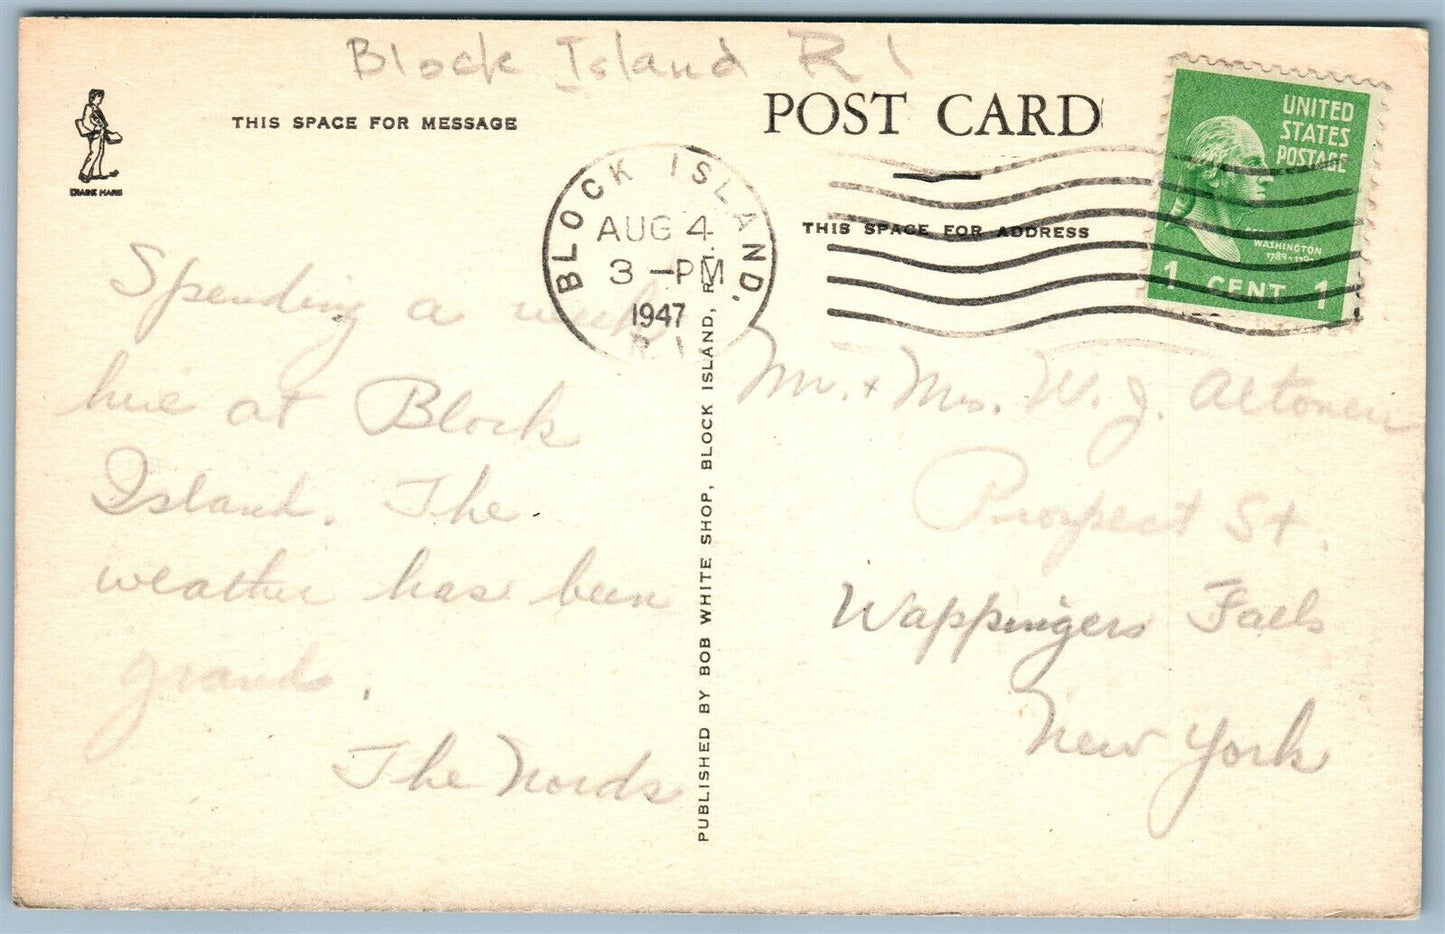 Block Island R I
THIS SPACE FOR MESSAGE
POST CARD
UNITED
STATES
POSTAGE
WASHINGTON
1 CENT 1
TRADE MARK
BLOCK ISLAND,
AUG 4
3 - PM
1947
R I
THIS SPACE FOR ADDRESS
Spending a week
here at Block
Island. The
weather has been
grand.
The Nords
PUBLISHED BY BOB WHITE SHOP, BLOCK ISLAND, R. I.
Mr. + Mrs. W. J.
Prospect St.
Wappingers Falls
New York